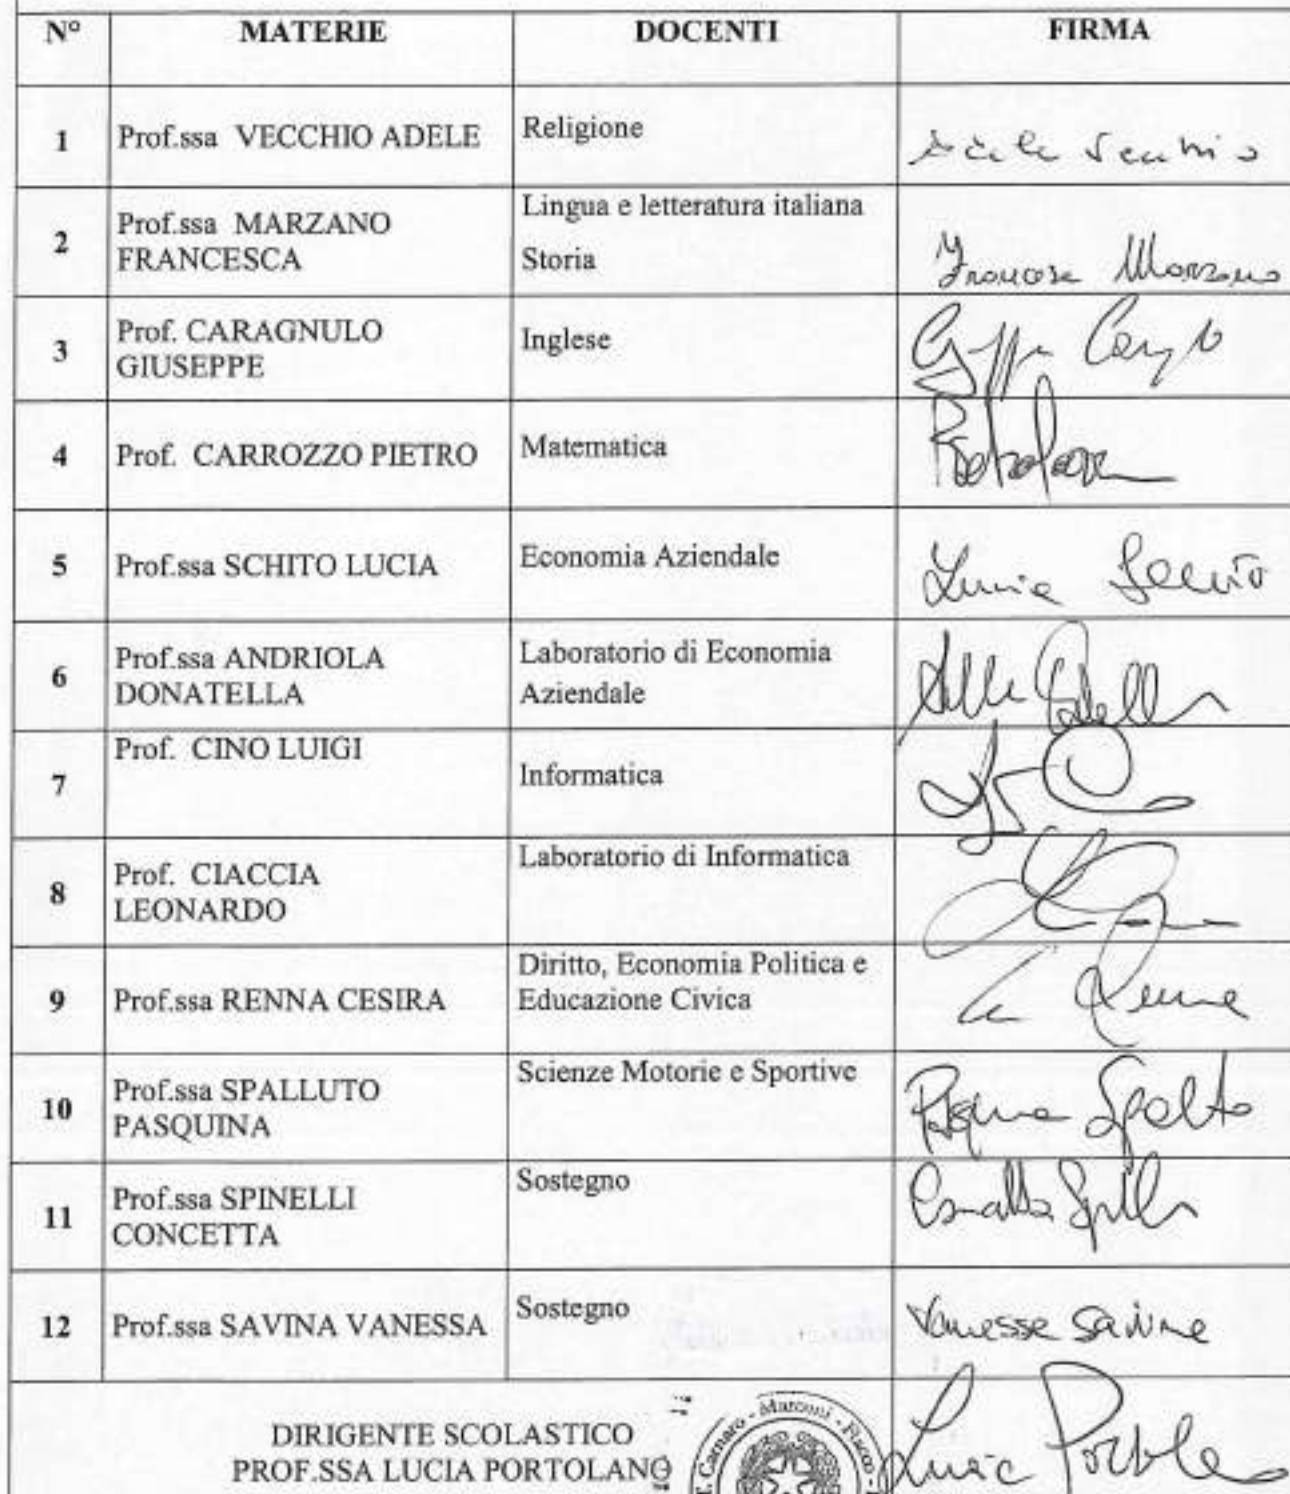 N° MATERIE DOCENTI FIRMA
1 Prof.ssa VECCHIO ADELE Religione Adele Vecchio
2 Prof.ssa MARZANO FRANCESCA Lingua e letteratura italiana
Storia Francesca Marzano
3 Prof. CARAGNULO
GIUSEPPE Inglese
4 Prof. CARROZZO PIETRO Matematica
5 Prof.ssa SCHITO LUCIA Economia Aziendale Lucia Schito
6 Prof.ssa ANDRIOLA
DONATELLA Laboratorio di Economia
Aziendale
7 Prof. CINO LUIGI Informatica
8 Prof. CIACCIA
LEONARDO Laboratorio di Informatica
9 Prof.ssa RENNA CESIRA Diritto, Economia Politica e
Educazione Civica Renna
10 Prof.ssa SPALLUTO
PASQUINA Scienze Motorie e Sportive
11 Prof.ssa SPINELLI
CONCETTA Sostegno
12 Prof.ssa SAVINA VANESSA Sostegno Vanessa Savina
DIRIGENTE SCOLASTICO
PROF.SSA LUCIA PORTOLANO
Carnaro - Marconi - Flacco -